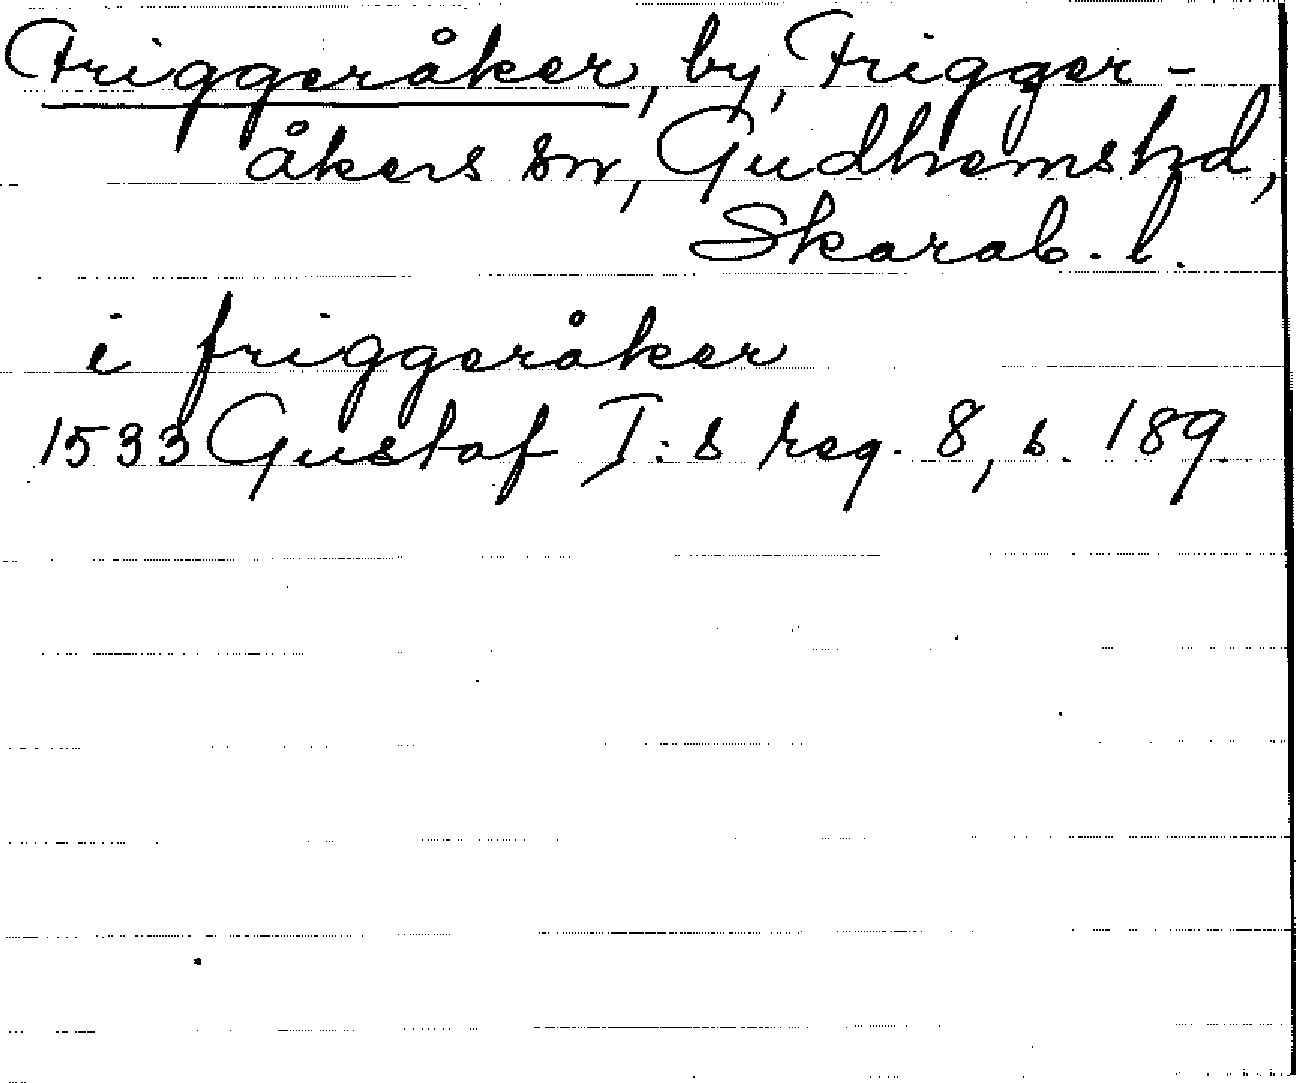 Friggeråker, by, Frigger-
åkers sn, Gudhems hd,
Skarab. l.
i friggeråker
1533 Gustaf I:s reg. 8, s. 189.